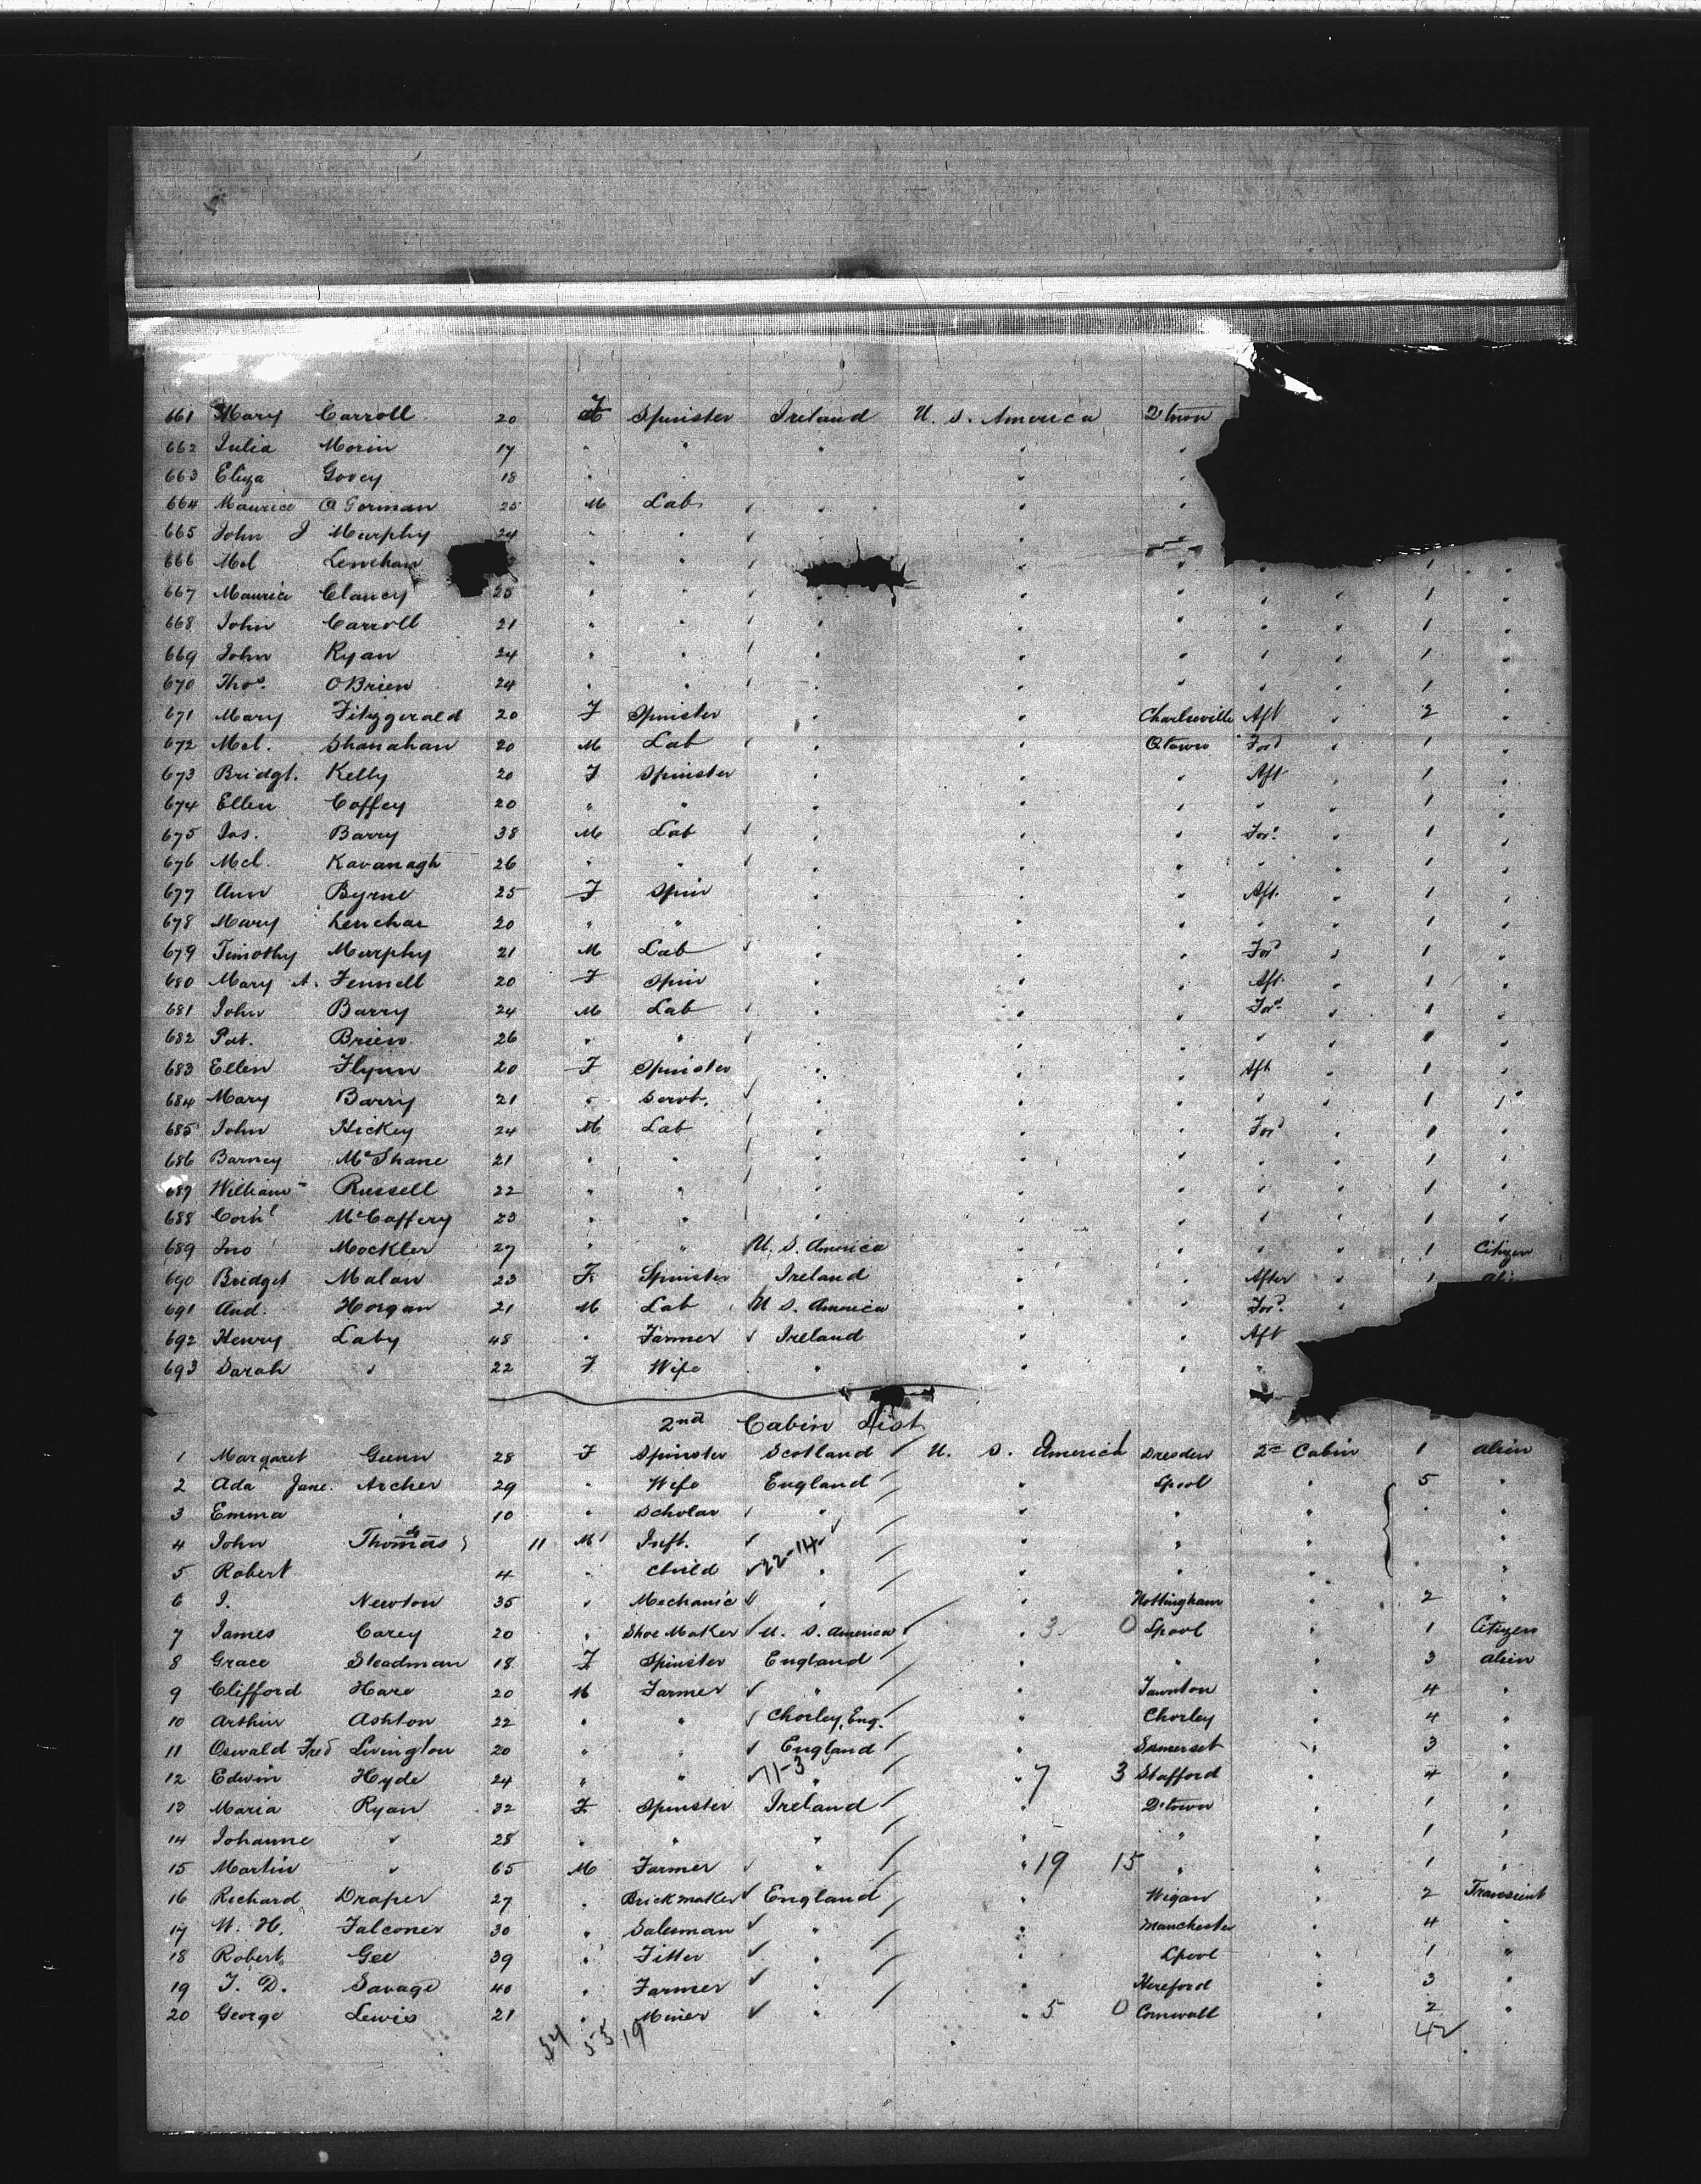 661 Mary Carroll 20 F Spinster Ireland U. S. America Qtown
662 Julia Morin 17 " " " " "
663 Eliza Govey 18 " " " "
664 Maurice O Gorman 25 M Lab " " "
665 John J Murphy 24 " " " "
666 Mcl Lenehan " " " " " " 1 "
667 Maurice Clancy 25 " " " " " " " 1 "
668 John Carroll 21 " " " " " " " 1 "
669 John Ryan 24 " " " " " " " 1 "
670 Thos. O'Brien 24 " " " " " " " 1 "
671 Mary Fitzgerald 20 F Spinster " " Charleville Aft " 2 "
672 Mcl. Shanahan 20 M Lab " " Qtown For'd " 1 "
673 Bridgt. Kelly 20 F Spinster " " " Aft " 1 "
674 Ellen Coffey 20 " " " " " " " 1 "
675 Jas. Barry 38 M Lab " " " For'd " 1 "
676 Mcl. Kavanagh 26 " " " " " " " 1 "
677 Ann Byrne 25 F Spin " " " Aft. " 1 "
678 Mary 20 " " " " " " " 1 "
679 Timothy Murphy 21 M Lab " " " For'd " 1 "
680 Mary A. Fennell 20 F Spin " " " Aft. " 1 "
681 John Barry 24 M Lab " " " For'd " 1 "
682 Pat. Brien 26 " " " " " " " 1 "
683 Ellen Flynn 20 F Spinster " " " Aft " 1 "
684 Mary Barry 21 " Servt. " " " " " 1 "
685 John Hickey 24 M Lab " " " For'd " 1 "
686 Barney McShane 21 " " " " " " " 1 "
687 William Russell 22 " " " " " " " 1 "
688 Corn'l McCaffery 23 " " " " " " " 1 "
689 Jno Mockler 27 " " U. S. America " " " " 1 Citizen
690 Bridget Malon 23 F. Spinster Ireland " " After " 1
691 And. Horgan 21 M Lab U S. America " " For'd. "
692 Henry Laby 48 " Farmer Ireland " " Aft
693 Sarah " 22 F Wife " " " "
2nd Cabin List
1 Margaret Gunn 28 F Spinster Scotland U. S. America Dresden 2nd Cabin 1 alien
2 Ada Jane. Archer 29 " Wife England Lpool " 5 "
3 Emma " 10 " Scholar " " " " " "
4 John Thomas 11 M Inft. " " " "
5 Robert 4 " Child 22-14 " " " " " "
6 J. Newton 35 " Mechanic " " Nottingham " 2 "
7 James Carey 20 " Shoe Maker U. S. America " 3 0 Lpool " 1 Citizen
8 Grace Steadman 18 F Spinster England " " " 3 alien
9 Clifford Hare 20 M Farmer " " Taunton " 4 "
10 Arthur Ashton 22 " " Chorley, Eng. " Chorley " 4 "
11 Oswald Fred Livington 20 " " England " Somerset " 3 "
12 Edwin Hyde 24 " " 11-3 " " 7 3 Stafford " 4 "
13 Maria Ryan 32 F Spinster Ireland " Q'town " 1 "
14 Johanne " 28 " " " " " " 1 "
15 Martin " 65 M Farmer " " 19 15 " " 1 "
16 Richard Draper 27 " Brickmaker England " Wigan " 2 Transient
17 W. H. Falconer 30 " Salesman " " Manchester " 4 "
18 Robert Gee 39 " Fitter " " Lpool " 1 "
19 J. D. Savage 40 " Farmer " " Hereford " 3 "
20 George Lewis 21 " Miner " " 5 0 Cornwall " 2 "
54 55 19 42